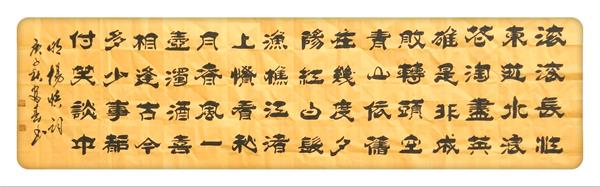 滾滾長江
東逝水浪
花淘盡英
雄是非成
敗轉頭空
青山依舊
在幾度夕
陽紅白髮
漁樵江渚
上慣看秋
月春風一
壺濁酒喜
相逢古今
多少事都
付笑談中
明楊慎詞
庚子秋